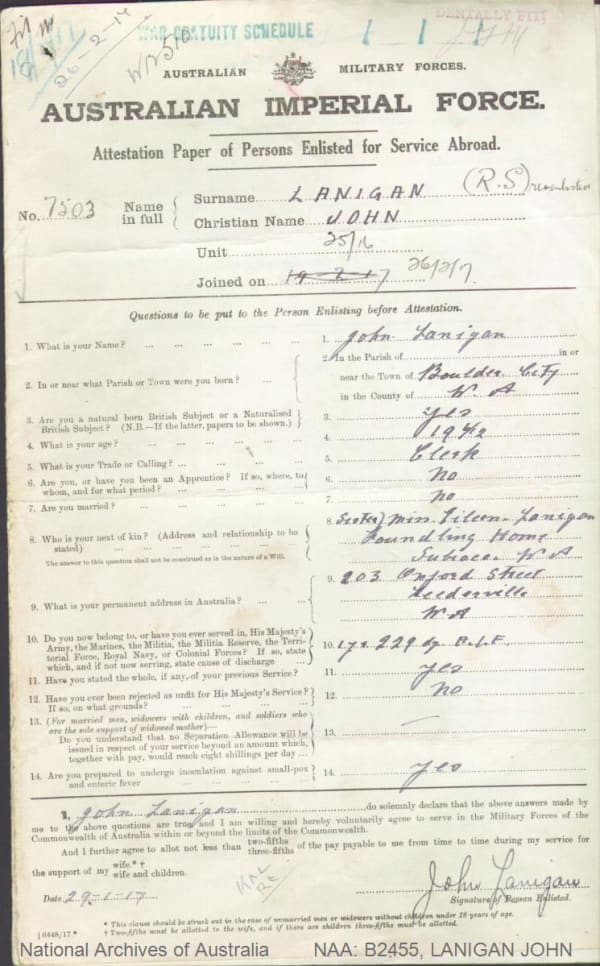 WAR GRATUITY SCHEDULE
DENTALLY FIT
26-2-17
W12510
AUSTRALIAN MILITARY FORCES.
AUSTRALIAN IMPERIAL FORCE.
Attestation Paper of Persons Enlisted for Service Abroad.
No. 7503 Name in full { Surname LANIGAN (R.S)
Christian Name JOHN
Unit 25/16
Joined on 19-2-17 26/2/17
Questions to be put to the Person Enlisting before Attestation.
1. What is your Name? ... 1. John Lanigan
2. In or near what Parish or Town were you born? ... 2. In the Parish of ... in or
near the Town of Boulder City
in the County of W A
3. Are you a natural born British Subject or a Naturalised
British Subject? (N.B.—If the latter, papers to be shown.) } 3. Yes
4. What is your age? ... 4. 19 4/12
5. What is your Trade or Calling? ... 5. Clerk
6. Are you, or have you been an Apprentice? If so, where, to
whom, and for what period? ... 6. No
7. Are you married? ... 7. No
8. Who is your next of kin? (Address and relationship to be
stated) ... 8. (Sister) Miss Eileen Lanigan
Foundling Home
Subiaco W A
The answer to this question shall not be construed as in the nature of a Will.
9. What is your permanent address in Australia? ... 9. 203 Oxford Street
Leederville
W A
10. Do you now belong to, or have you ever served in, His Majesty's
Army, the Marines, the Militia, the Militia Reserve, the Terri-
torial Force, Royal Navy, or Colonial Forces? If so, state
which, and if not now serving, state cause of discharge ... 10. 1 yr 229 dy A.I.F.
11. Have you stated the whole, if any, of your previous Service? 11. Yes
12. Have you ever been rejected as unfit for His Majesty's Service?
If so, on what grounds? ... 12. No
13. (For married men, widowers with children, and soldiers who
are the sole support of widowed mother)—
Do you understand that no Separation Allowance will be
issued in respect of your service beyond an amount which,
together with pay, would reach eight shillings per day ... 13. —
14. Are you prepared to undergo inoculation against small-pox
and enteric fever ... 14. Yes
I, John Lanigan do solemnly declare that the above answers made by
me to the above questions are true, and I am willing and hereby voluntarily agree to serve in the Military Forces of the
Commonwealth of Australia within or beyond the limits of the Commonwealth.
And I further agree to allot not less than two-fifths three-fifths of the pay payable to me from time to time during my service for
the support of my wife.* † wife and children.
Date 29-1-17
John Lanigan
Signature of Person Enlisted.
* This clause should be struck out in the case of unmarried men or widowers without children under 18 years of age.
† Two-fifths must be allotted to the wife, and if there are children three-fifths must be allotted.
National Archives of Australia NAA: B2455, LANIGAN JOHN